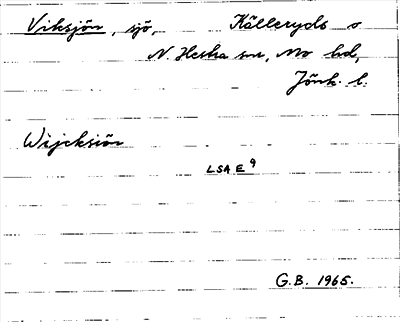 Viksjön, sjö, Källeryds o
N. Hestra snr, Mo hd,
Jönk. l.
Wijcksiön
LSA E9
G.B. 1965.